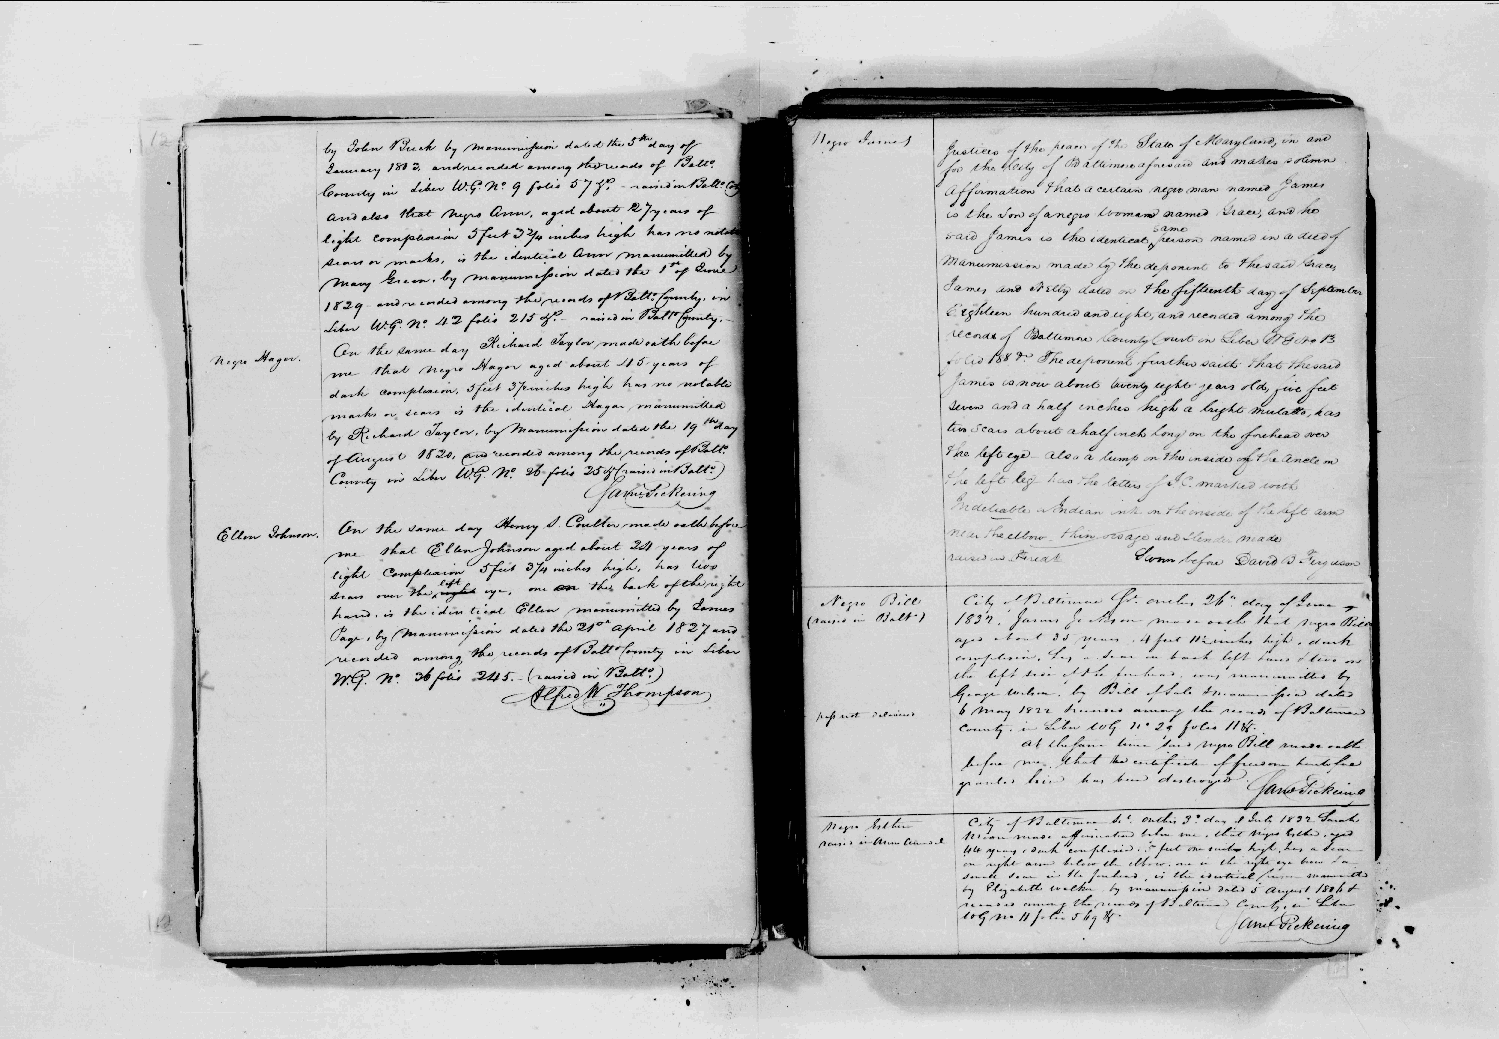 by John Buck by manumission dated the 5th day of
January 1803, and recorded among the records of Balto.
County in Liber W.G. No. 9 folio 57 &c. – raised in Balto. Coty
and also that negro Ann, aged about 27 years of
light complexion 5 feet 3 3/4 inches high has no notable
scars or marks, is the identical Ann manumitted by
Mary Green, by manumission dated the 1st of June
1829 and recorded among the records of Balto. County, in
Liber W.G. No. 42 folio 215 &c. – raised in Balto. County. –
Negro Hagar.
On the same day Richard Taylor, made oath before
me that negro Hagar aged about 45 years of
dark complexion, 5 feet inches high has no notable
marks or scars is the identical Hagar, manumitted
by Richard Taylor, by manumission dated the 19th day
of August 1820, and recorded among the records of Balto.
County in Liber W.G. No. 26 folio 25 &c (raised in Balto.)
James Pickering
Ellen Johnson.
On the same day Henry S. Coulter, made oath before
me that Ellen Johnson aged about 24 years of
light complexion 5 feet 3/4 inches high, has two
scars over the right left eye, one on the back of the right
hand, is the identical Ellen manumitted by James
Page, by manumission dated the 21st April 1827 and
recorded among the records of Balto. County in Liber
W.G. No. 36 folio 245. – (raised in Balto.)
Alfred W. Thompson
Negro James
Justices of the peace of the State of Maryland, in and
for the City of Baltimore aforesaid and makes solemn
affirmation that a certain negro man named James
is the Son of a negro Woman named Grace, and he
said James is the identical same person named in a deed of
Manumission made by the deponent to the said Grace,
James and Nelly dated on the fifteenth day of September
Eighteen hundred and eight, and recorded among the
records of Baltimore County Court in Liber No 13
folio 188 &c. The deponent further saith that the said
James is now about twenty eight years old, five feet
seven and a half inches high a bright mulatto, has
two scars about a half inch long on the forehead over
the left eye also a lump on the inside of the ancle on
the left leg has the letters of J.C. marked with
Indelible Indian ink on the inside of the left arm
near the elbow, thin visage and slender made
raised in Sworn before David B. Ferguson
Negro Bill
(raised in Balto.)
City of Baltimore Sc. on this 26th day of June
1832, James Jackson made oath that negro Bill
aged about 33 years, 4 feet 11 1/2 inches high, dark
complexion, has a scar on back left hand & two on
the left side of the forehead, was manumitted by
George Wilson, by Bill of Sale & manumission dated
6 May 1822 & recorded among the records of Baltimore
County, in Liber WG No 29 folio 118 &c.
pass not delivered
At the same time said negro Bill made oath
before me, that the certificate of freedom heretofore
granted him has been destroyed.
James Pickering
Negro Esther
raised in Anne Arundel
City of Baltimore Sc. on this 3d day of July 1832 Sarah
made affirmation before me, that negro Esther, aged
44 years, dark complexion, 5 feet one inch high, has a scar
on right arm below the elbow, one in the right eye brow & a
small scar in the forehead, is the identical person manumitted
by Elizabeth Walker by manumission dated 5 August 1806 &
recorded among the records of Baltimore County, in Liber
WG No 11 folio 569 &c.
James Pickering